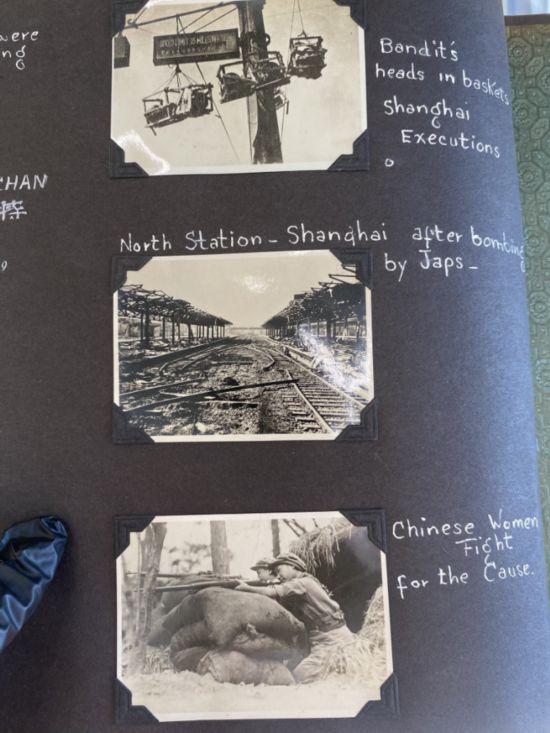 were
ng
Bandit's
heads in baskets
Shanghai
Executions
CHAN
North Station - Shanghai after bombing
by Japs -
9
Chinese Women
Fight
for the Cause.